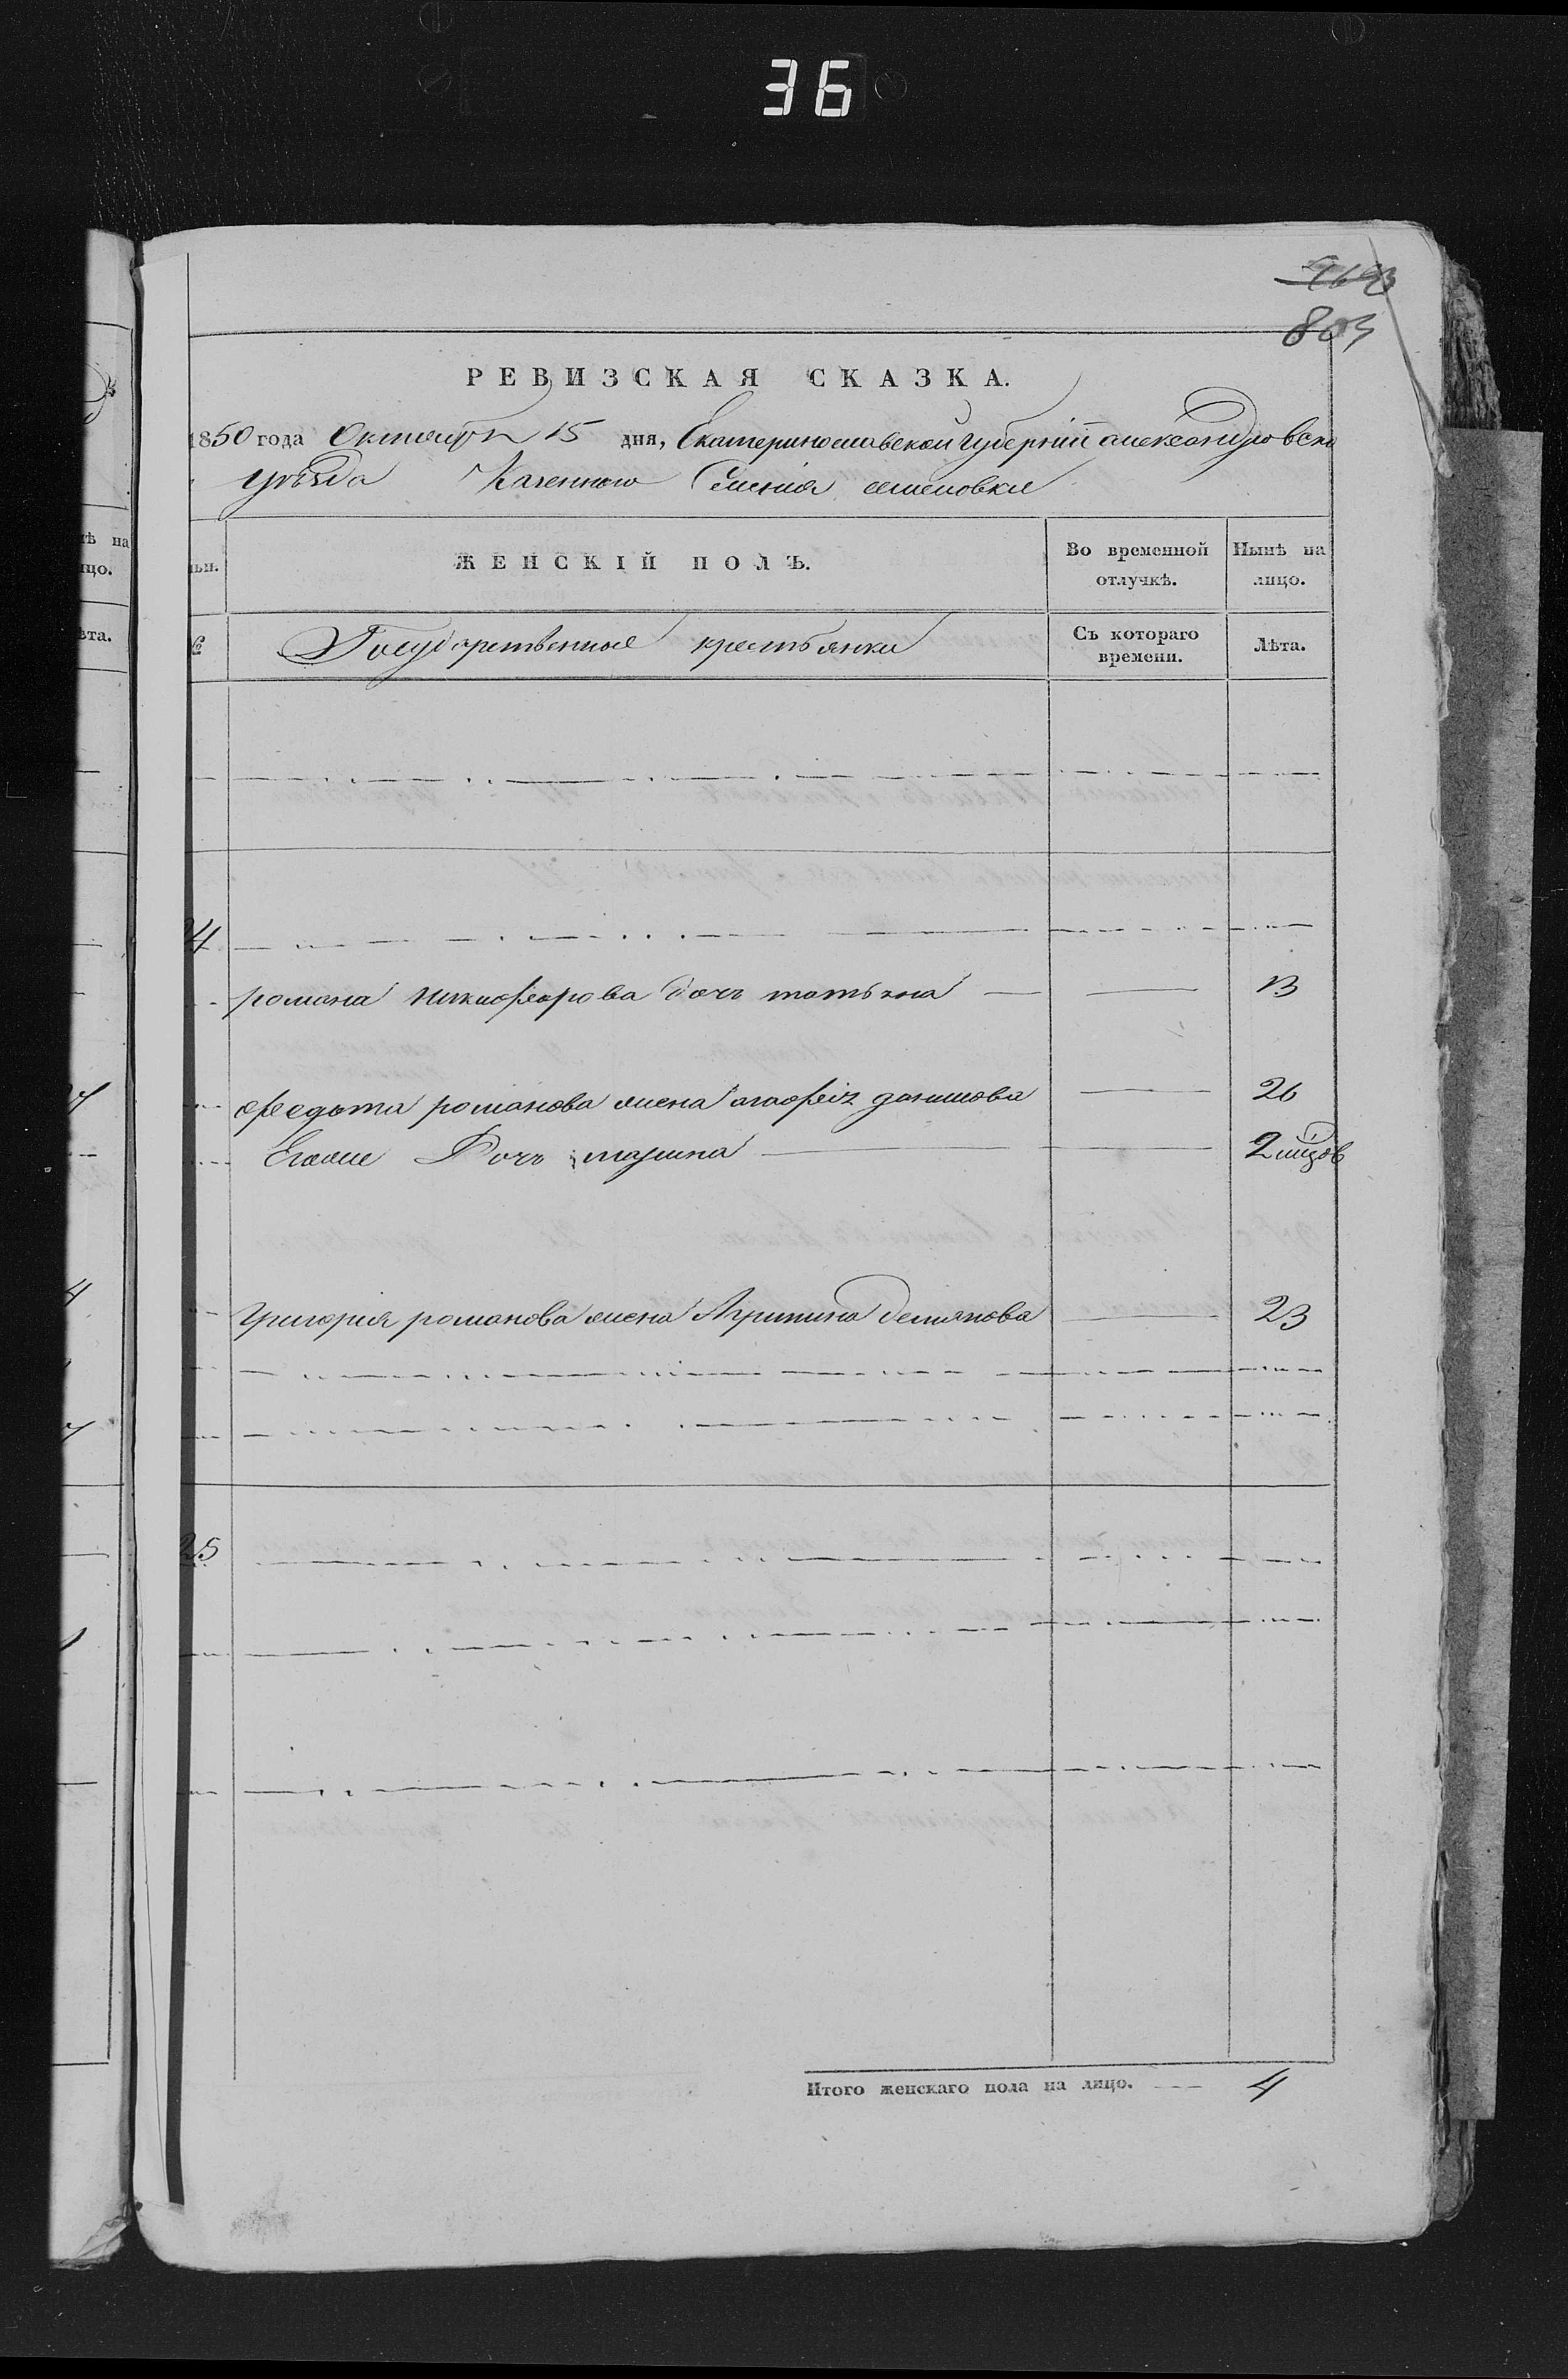 36
803
РЕВИЗСКАЯ СКАЗКА.
1850 года Октября 15 дня, Екатеринославской губерніи александровско
уѣзда Казенного Селенія семеновки
ЖЕНСКІЙ ПОЛЪ.
Во временной отлучкѣ.
Нынѣ на лицо.
№
Государственные крестьянки
Съ котораго времени.
Лѣта.
24
романа никифорова дочь татьяна 13
федота романова жена агафія данилова 26
Егоже дочь марина 2
григорія романова жена Агрипина демянова 23
25
Итого женскаго пола на лицо. 4